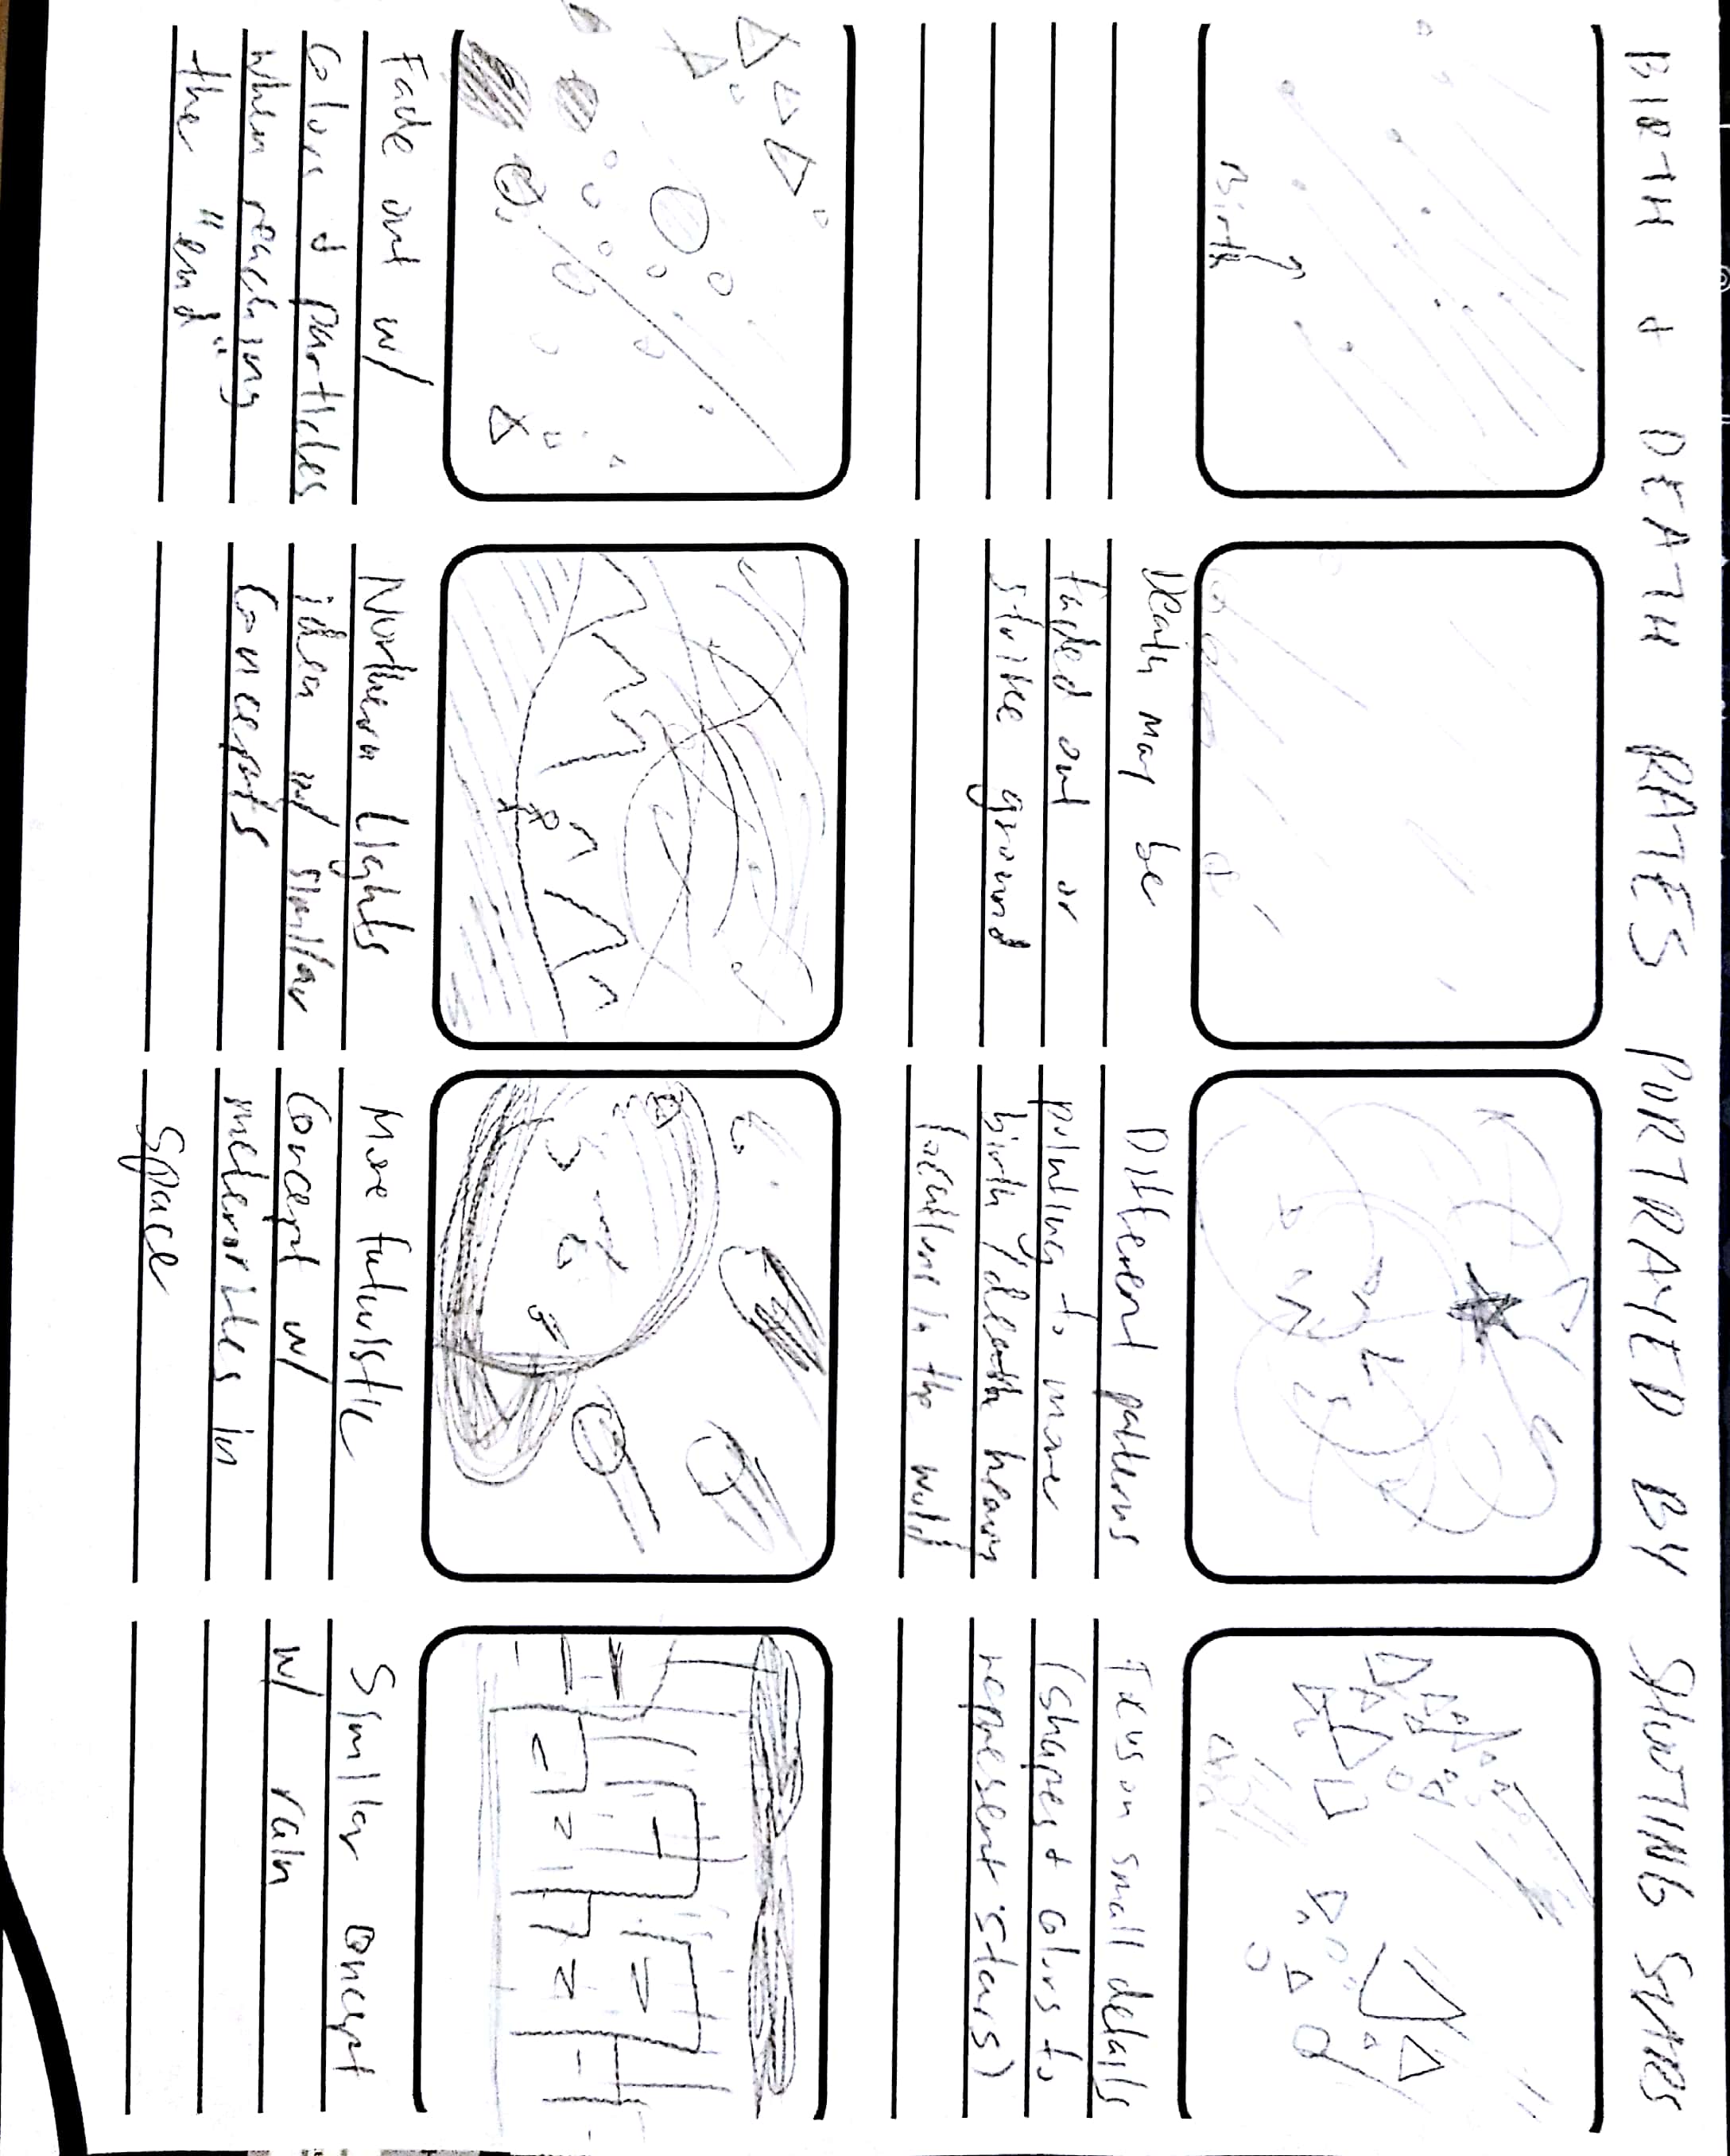 BIRTH & DEATH RATES PORTRAYED BY SHOOTING STARS
Birth
Death may be
faded out or
strike ground
Different patterns
pointing to more
birth / death heavy
locations in the world
Focus on small details
(shapes & colors to
represent stars)
Fade out w/
colors & particles
when reaching
the "end"
Northern Lights
idea w/ similar
concepts
More futuristic
concept w/
meterorites in
space
Similar concept
w/ rain